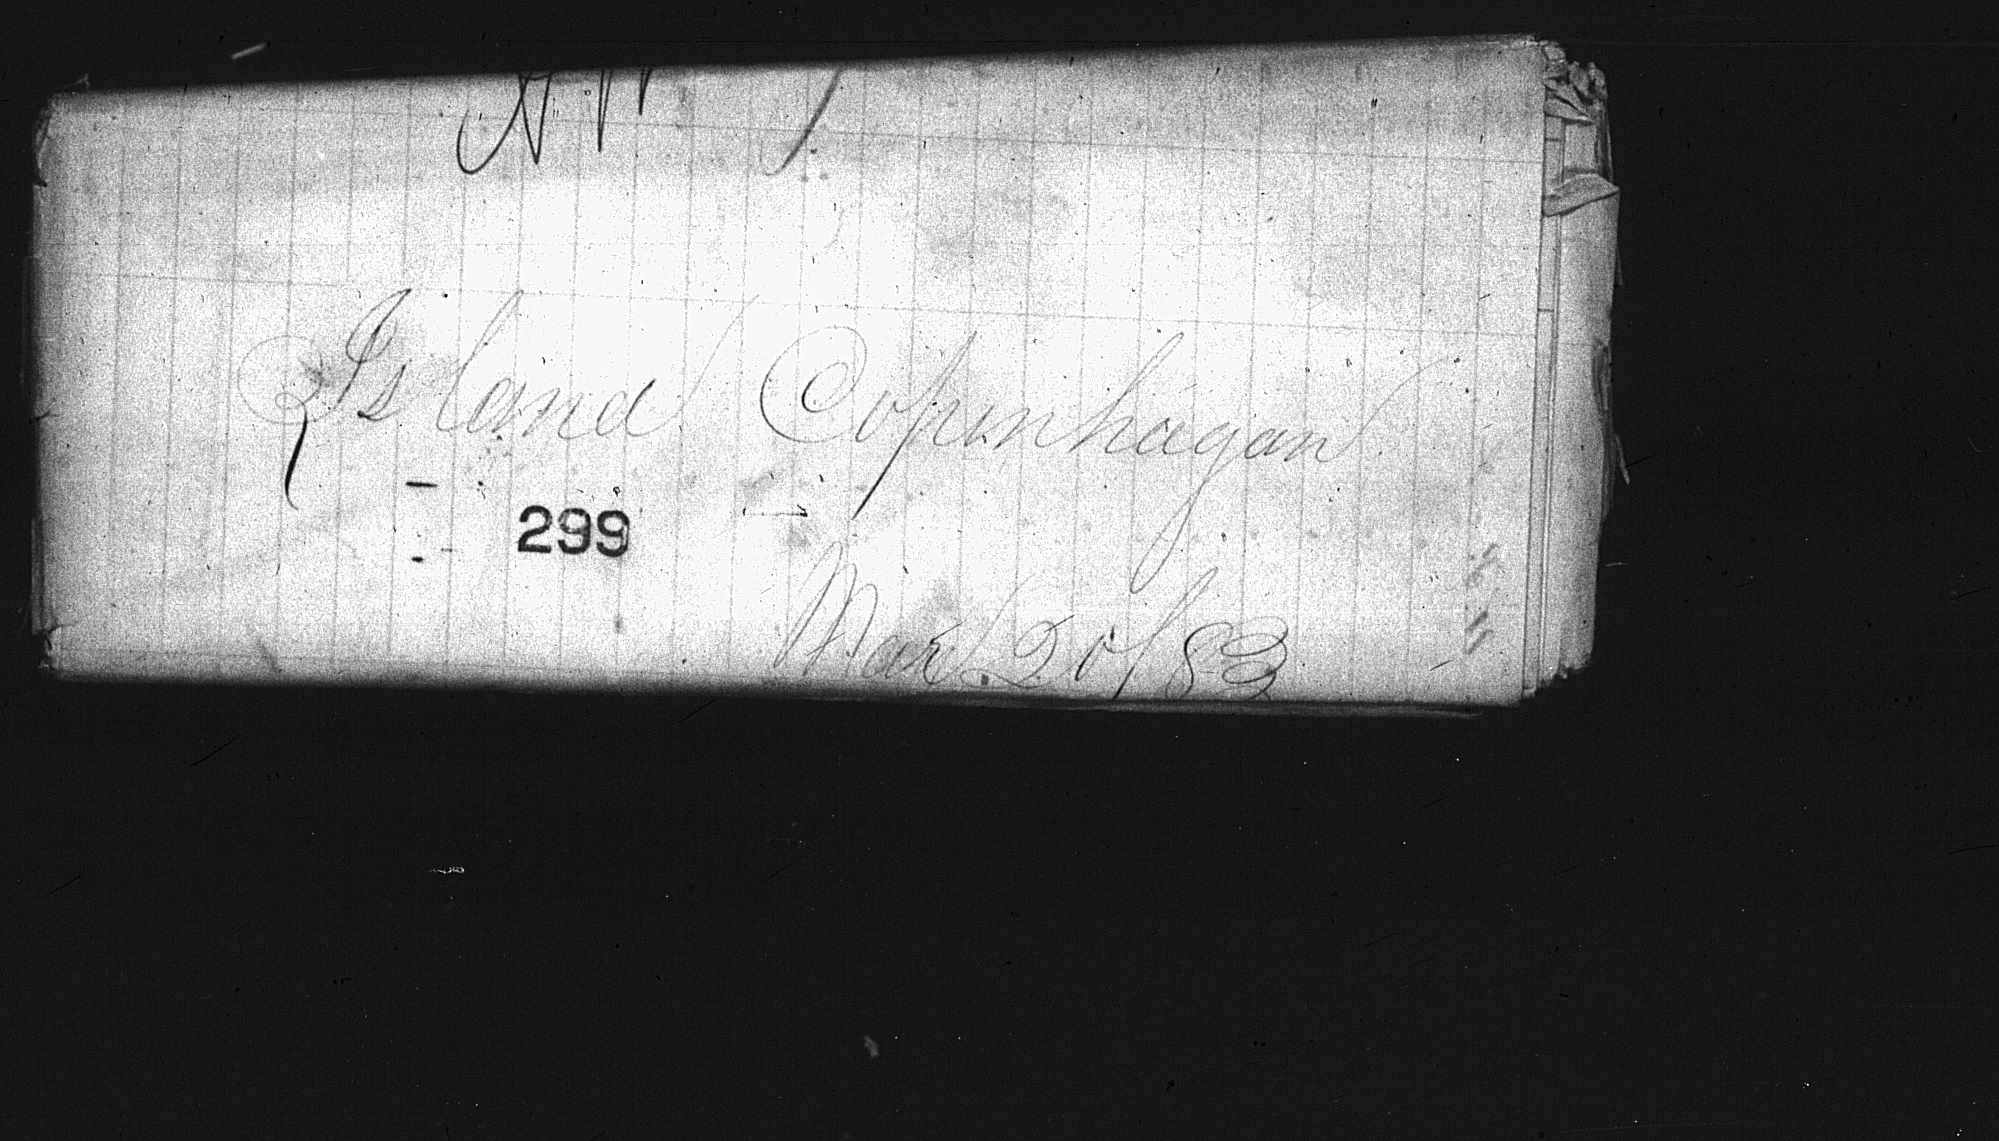 Island Copenhagan
299
Mar 20/83